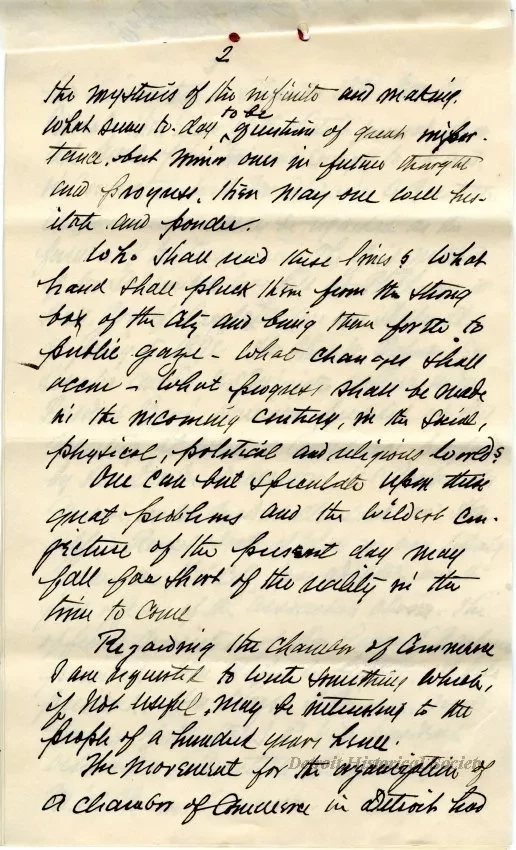 2
the mysteries of the infinite and making
what seem to-day to be question of great impor-
tance, but minor ones in future thought
and progress, then may one well hes-
itate and ponder.
Who shall read these lines? What
hand shall pluck them from the strong
box of the City and bring them forth to
public gaze - What changes shall
occur - What progress shall be made
in the incoming century, in the social,
physical, political and religious worlds?
One can but speculate upon these
great problems and the wildest con-
jecture of the present day may
fall far short of the reality in the
time to come
Regarding the Chamber of Commerce
I am requested to write something which,
if not useful, may be interesting to the
people of a hundred years hence.
The movement for the organization of
a Chamber of Commerce in Detroit had
Detroit Historical Society